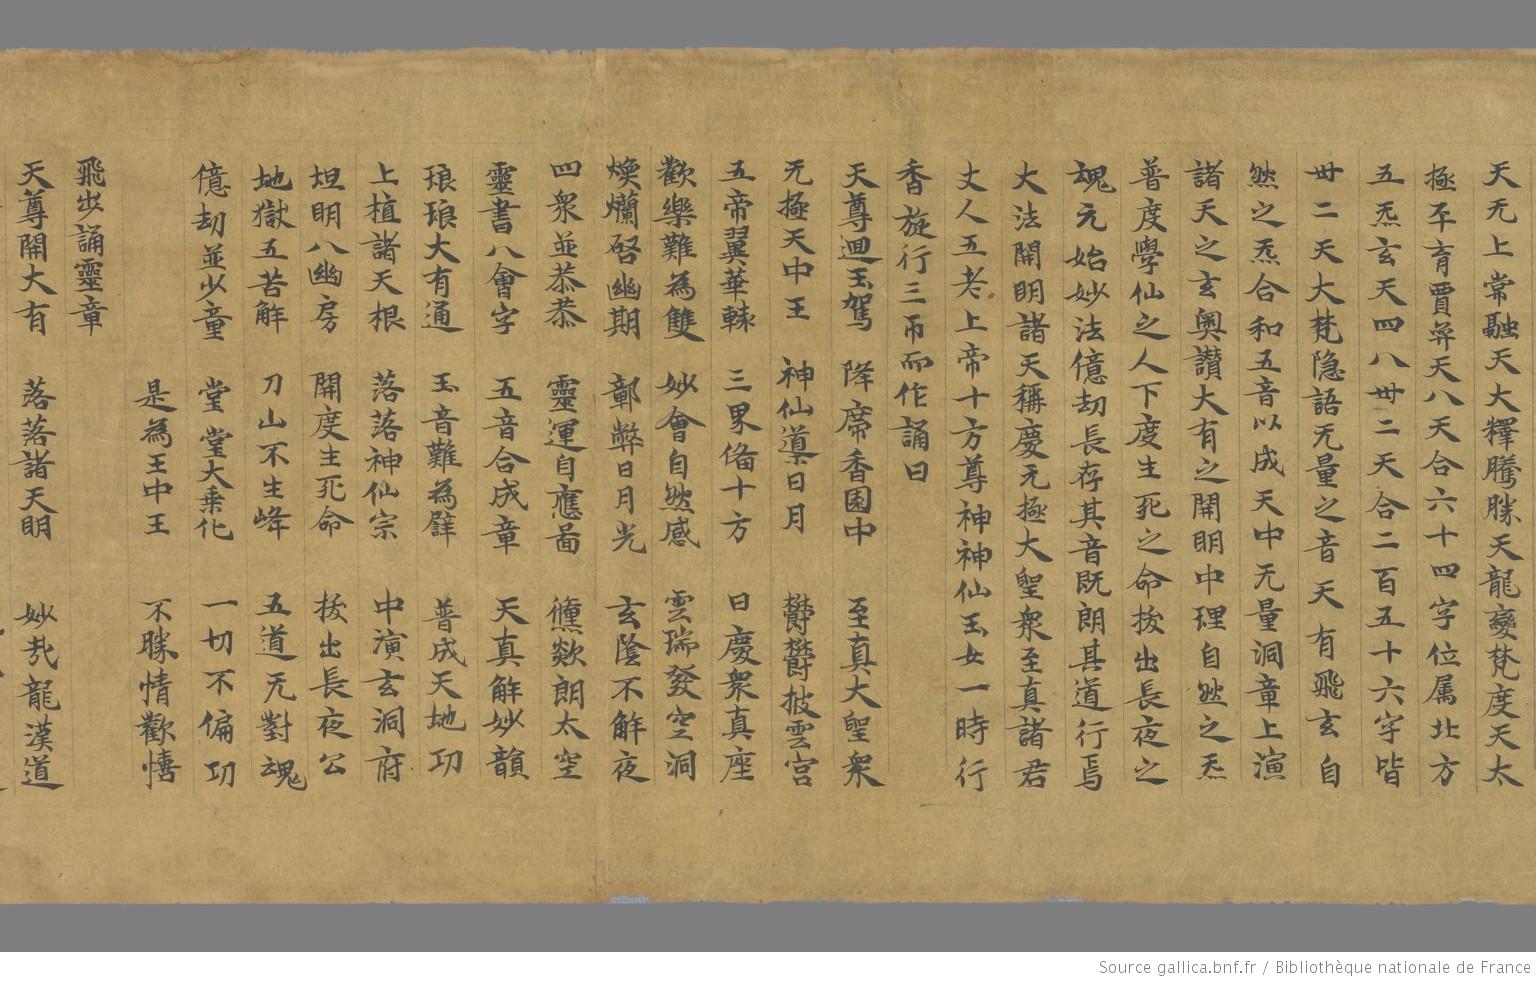 天无上常融天太釋騰勝天龍變梵度天太
極平育賈弈天八天合六十四字位属北方
五炁玄天四八卅二天合二百五十六字皆
卅二天大梵隐語无量之音天有飛玄自
然之炁合和五音以成天中无量洞章上演
諸天之玄奥讃大有之開明中理自然之炁
普度學仙之人下度生死之命拔出長夜之
魂元始妙法億劫長存其音既朗其道行焉
大法開明諸天稱慶无極大聖衆至真諸君
丈人五老上帝十方尊神神仙玉女一時行
香旋行三帀而作誦曰
天尊迴玉駕 降席香園中 至真大聖衆
无極天中王 神仙導日月 欝欝披雲宫
五帝翼華轅 三界俻十方 日慶衆真座
歡樂難為雙 妙會自然感 雲瑞發空洞
煥爛啓幽期 鄣弊日月光 玄陰不解夜
四衆並恭恭 靈運自應啚 儵歘朗太空
靈書八會字 五音合成章 天真解妙韻
琅琅大有通 玉音難為譬 普成天地功
上植諸天根 落落神仙宗 中演玄洞府
坦明八幽房 開度生死命 拔出長夜公
地獄五苦解 刀山不生峰 五道无對魂
億劫並少童 堂堂大乗化 一切不偏功
是為王中王 不勝情歡憘
飛出誦靈章
天尊開大有 落落諸天明 妙哉龍漢道
Source gallica.bnf.fr / Bibliothèque nationale de France